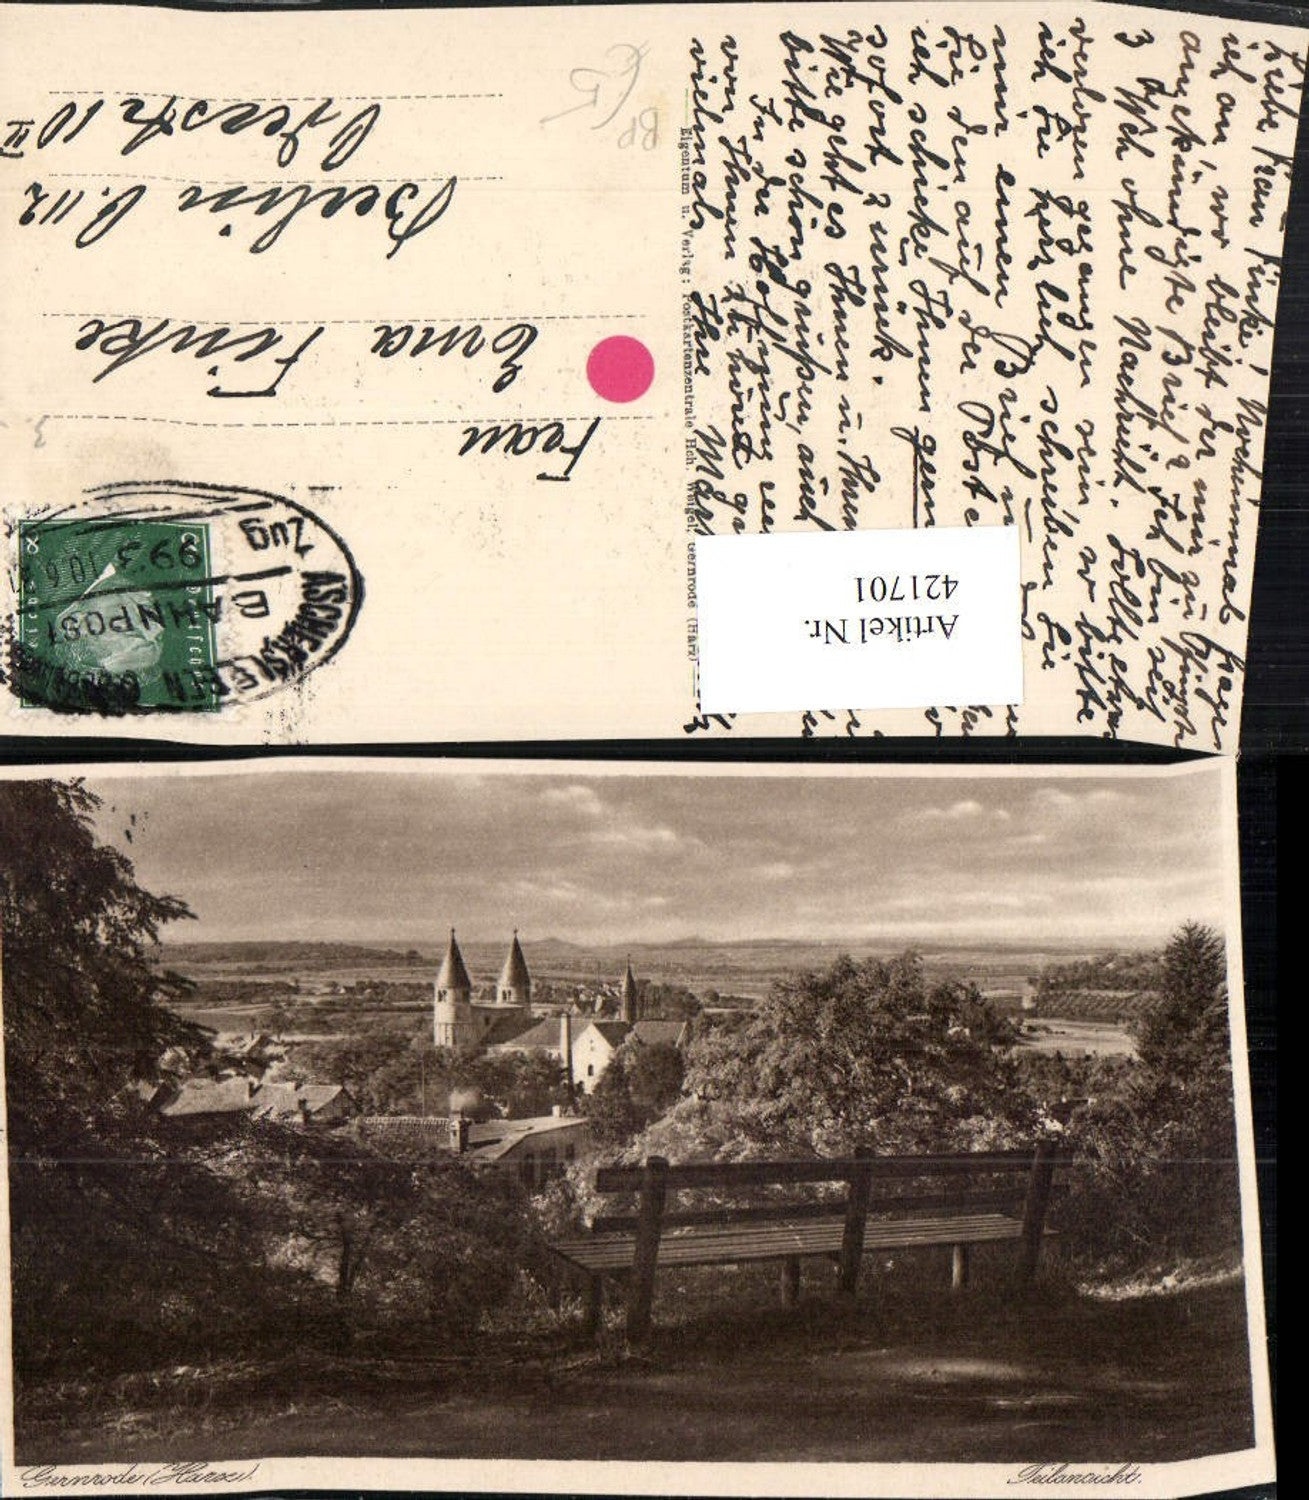 Liebe Frau Finke, Nocheinmal frage
ich an, wo bleibt der mir zu Pfingsten
angekündigte Brief? Ich bin seit
3 Wch ohne Nachricht. Sollte etwas
verloren gegangen sein, so bitte
ich Sie herzlich schreiben Sie
mir einen Brief
Sie den auf der Post
ich schicke Ihnen gern
sofort zurück.
Wie geht es Ihnen u. Ihrem
bitte schön grüßen, auch
In der Hoffnung
von Ihnen zu hören
vielmals Ihre
Eigentum u. Verlag: Postkartenzentrale Hch. Weigel, Gernrode (Harz)
Frau
Erna Finke
Berlin O.112
Oderstr 10 IV
BP
15
3
8
Zug
993 10.6.31
BAHNPOST
ASCHERSLEBEN
Artikel Nr.
421701
Gernrode (Harz).
Teilansicht.